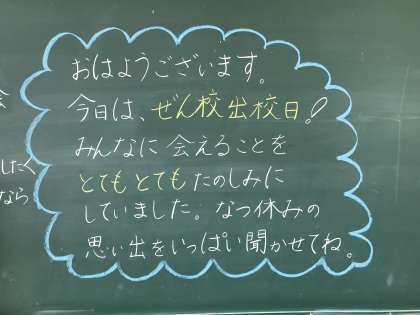 おはようございます。
今日は、ぜん校出校日！
みんなに会えることを
とてもとてもたのしみに
していました。なつ休みの
思い出をいっぱい聞かせてね。
会
したく
なら